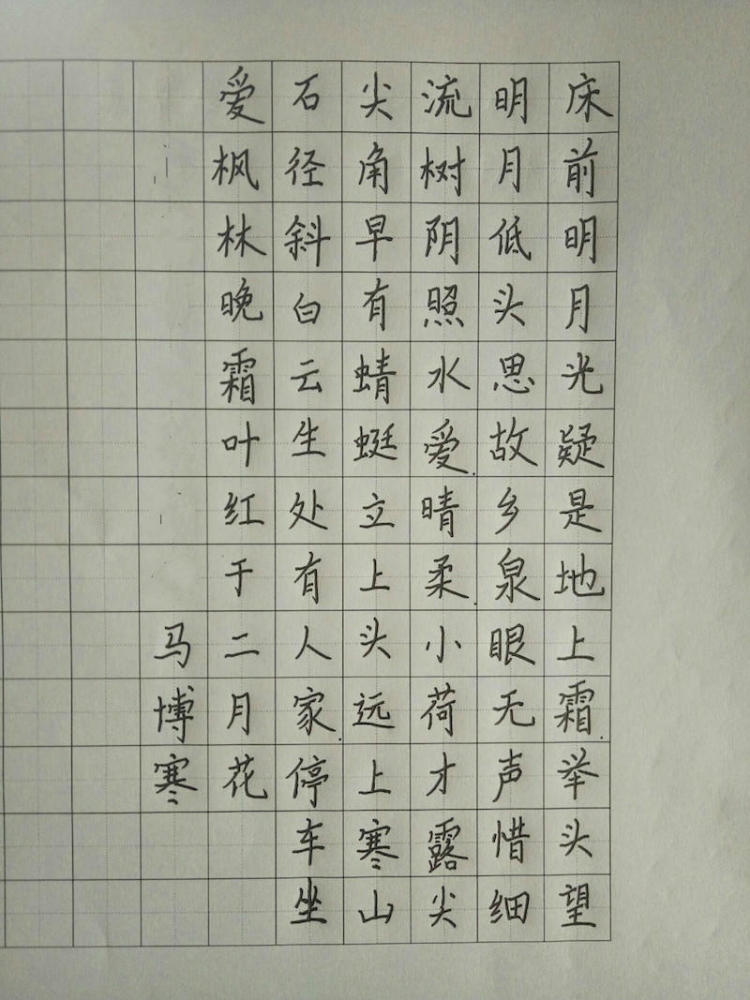 床前明月光疑是地上霜举头望
明月低头思故乡泉眼无声惜细
流树阴照水爱晴柔小荷才露尖
尖角早有蜻蜓立上头远上寒山
石径斜白云生处有人家停车坐
爱枫林晚霜叶红于二月花
马博寒